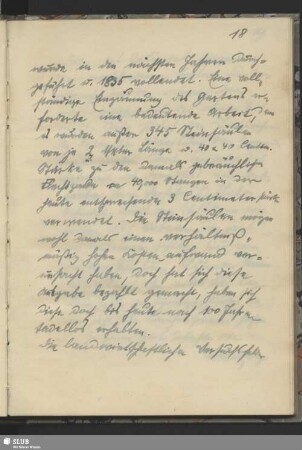 18
wurde in den nächsten Jahren durch-
geführt u. 1835 vollendet. Eine voll-
ständige Umzäunung des Gartens er-
forderte eine bedeutende Arbeit, denn
es wurden außer 345 Steinsäulen
von je 2 Meter Länge u. 40 x 40 Centim.
Stärke zu den damals gebräuchlichen
an 4900 Stangen in der
heute entsprechender 3 Centimeter
verwendet. Die Steinsäulen mögen
wohl damals einen verhältniß-
mäßig hohen Kostenaufwand ver-
ursacht haben, doch hat sich diese
Ausgabe bezahlt gemacht, haben sich
diese doch bis heute nach 100 Jahren
tadellos erhalten.
Die landwirtschaftlichen
SLUB
Wir führen Wissen.